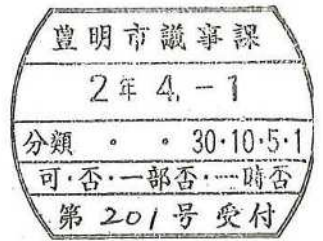 豊明市議事課
2年4.-1
分類 ・ ・ 30・10・5・1
可・否・一部否・一時否
第201号受付